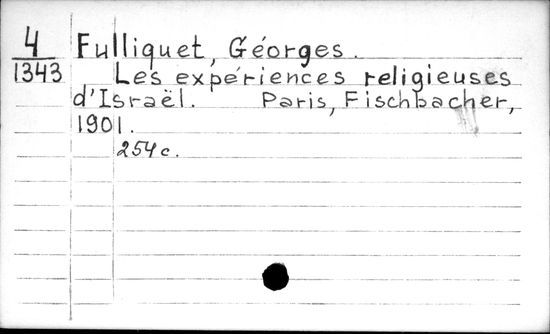 4
1343
Fulliquet, Géorges.
Les expériences religieuses
d'Israël. Paris, Fischbacher,
1901.
254 c.